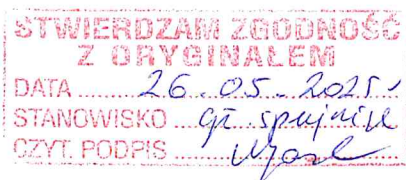 STWIERDZAM ZGODNOŚĆ
Z ORYGINAŁEM
DATA ........ 26.05.2025r
STANOWISKO ...
CZYT. PODPIS ........